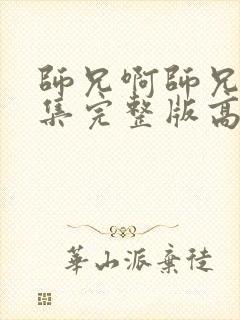 師兄啊師兄
集完整版高
華山派棄徒